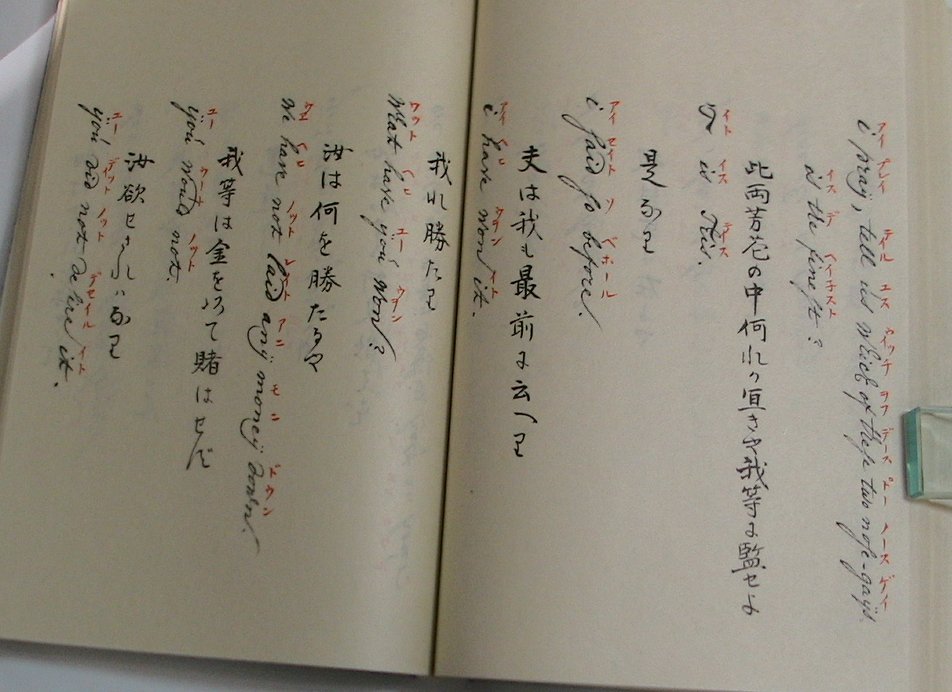 アイ プレイ テイル ユス ウイッチ ヲフ デース トー ノース ゲイ
i pray, tell us which of theſe two noſe-gays
イス デ
is the fineſt?
此両芳花の中何れか宜きや我等に監せよ
イト イス デイス
it is this.
是なり
アイ セイト ソ ベホール
i ſaid ſo before.
夫は我も最前に云へり
アイ
i have won it.
我れ勝たり
ワット ユー
What have you won?
汝は何を勝たるや
ノット レイト アニ モニ ドウン
we have not laid any money down.
我等は金を以て賭はせず
ユー ノット
you would not.
汝欲せされはなり
ユー デイット ノット デセイル イト
you did not desire it.